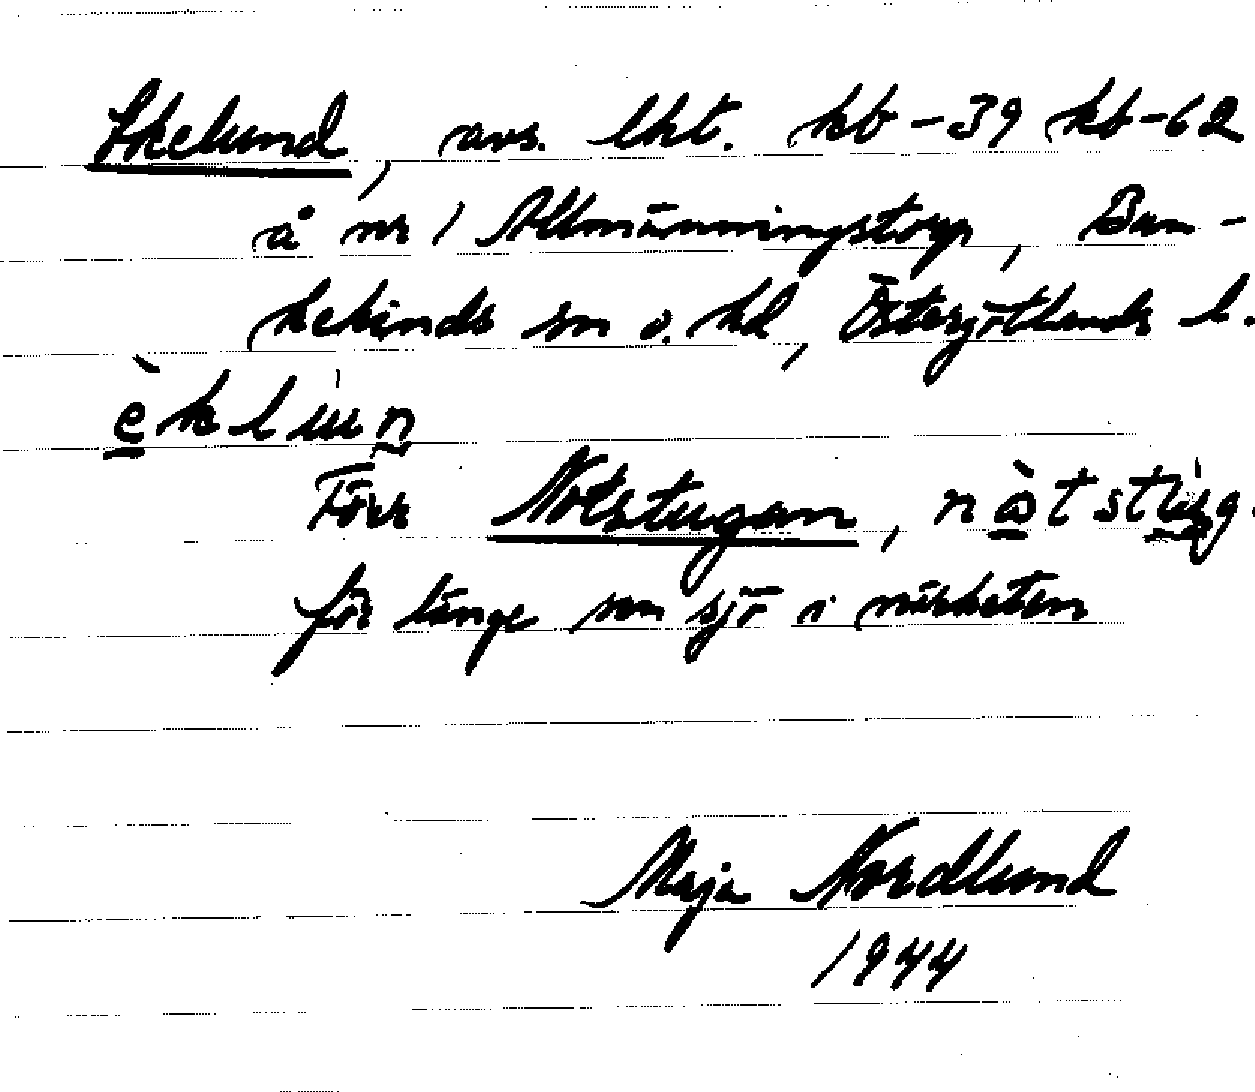 Ekelund, avs. lht. kb-39 kb-62
å nr 1 Allmänningstorp, Ban-
kekinds sn o. hd, Östergötlands l.
èklu̇n
Förr Notstugan, nòtstu̇g.
för länge sen sjö i närheten
Maja Nordlund
1944